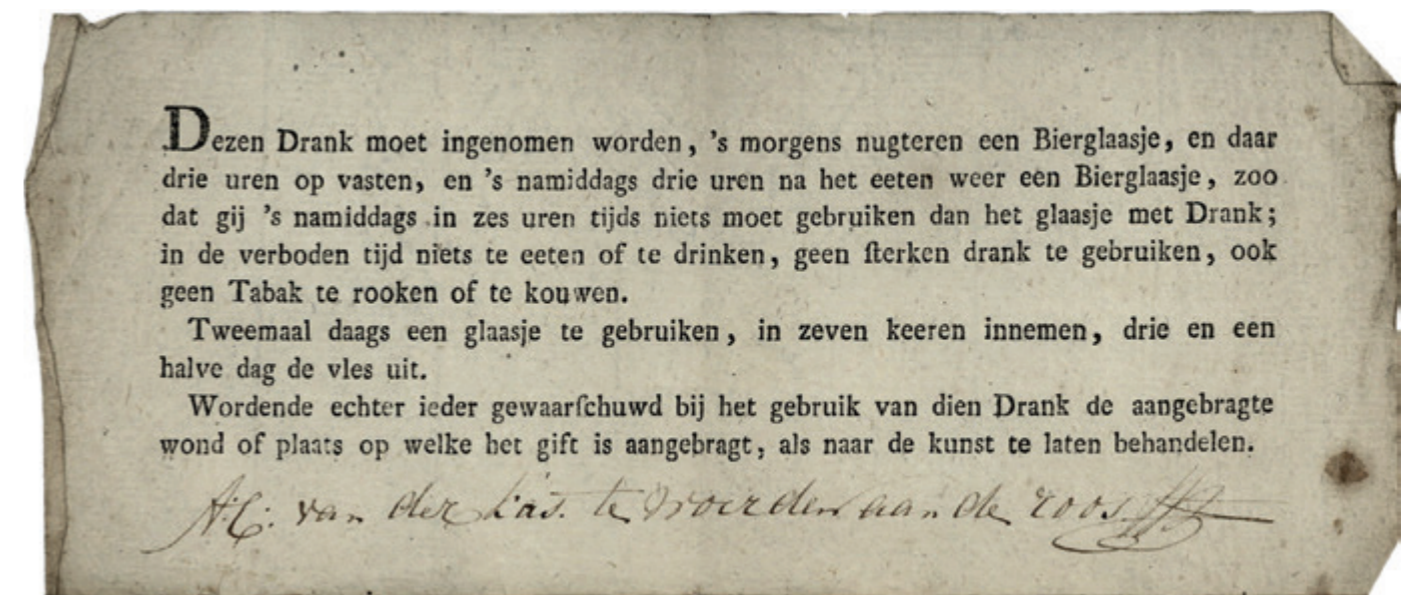 Dezen Drank moet ingenomen worden, 's morgens nugteren een Bierglaasje, en daar
drie uren op vasten, en 's namiddags drie uren na het eeten weer een Bierglaasje, zoo
dat gij 's namiddags in zes uren tijds niets moet gebruiken dan het glaasje met Drank;
in de verboden tijd niets te eeten of te drinken, geen ſterken drank te gebruiken, ook
geen Tabak te rooken of te kouwen.
Tweemaal daags een glaasje te gebruiken, in zeven keeren innemen, drie en een
halve dag de vles uit.
Wordende echter ieder gewaarſchuwd bij het gebruik van dien Drank de aangebragte
wond of plaats op welke het gift is aangebragt, als naar de kunst te laten behandelen.
van der Las. te Woerden aan de roos